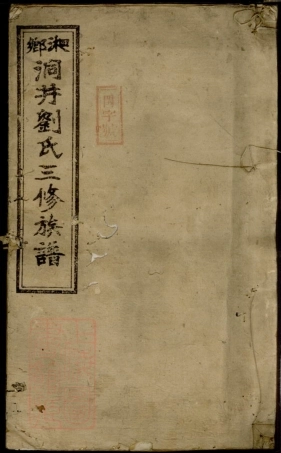 湘鄉
洞井劉氏三修族譜